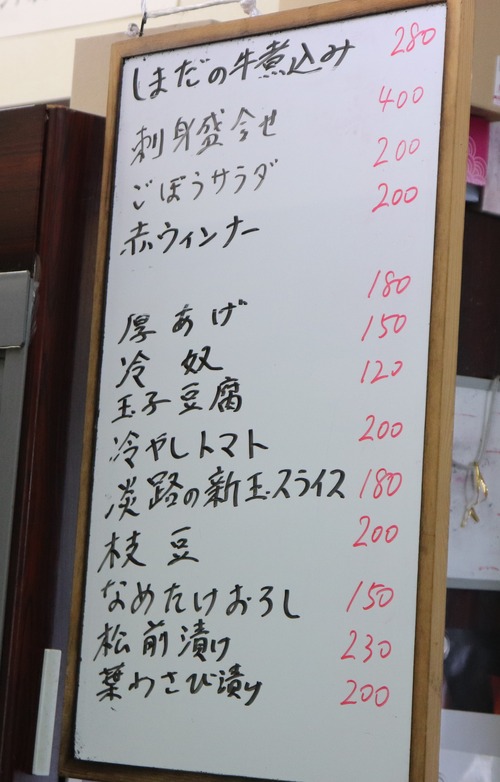 しまだの牛煮込み 280
刺身盛合せ 400
ごぼうサラダ 200
赤ウィンナー 200
厚あげ 180
冷奴 150
玉子豆腐 120
冷やしトマト 200
淡路の新玉スライス 180
枝豆 200
なめたけおろし 150
松前漬け 230
葉わさび漬け 200